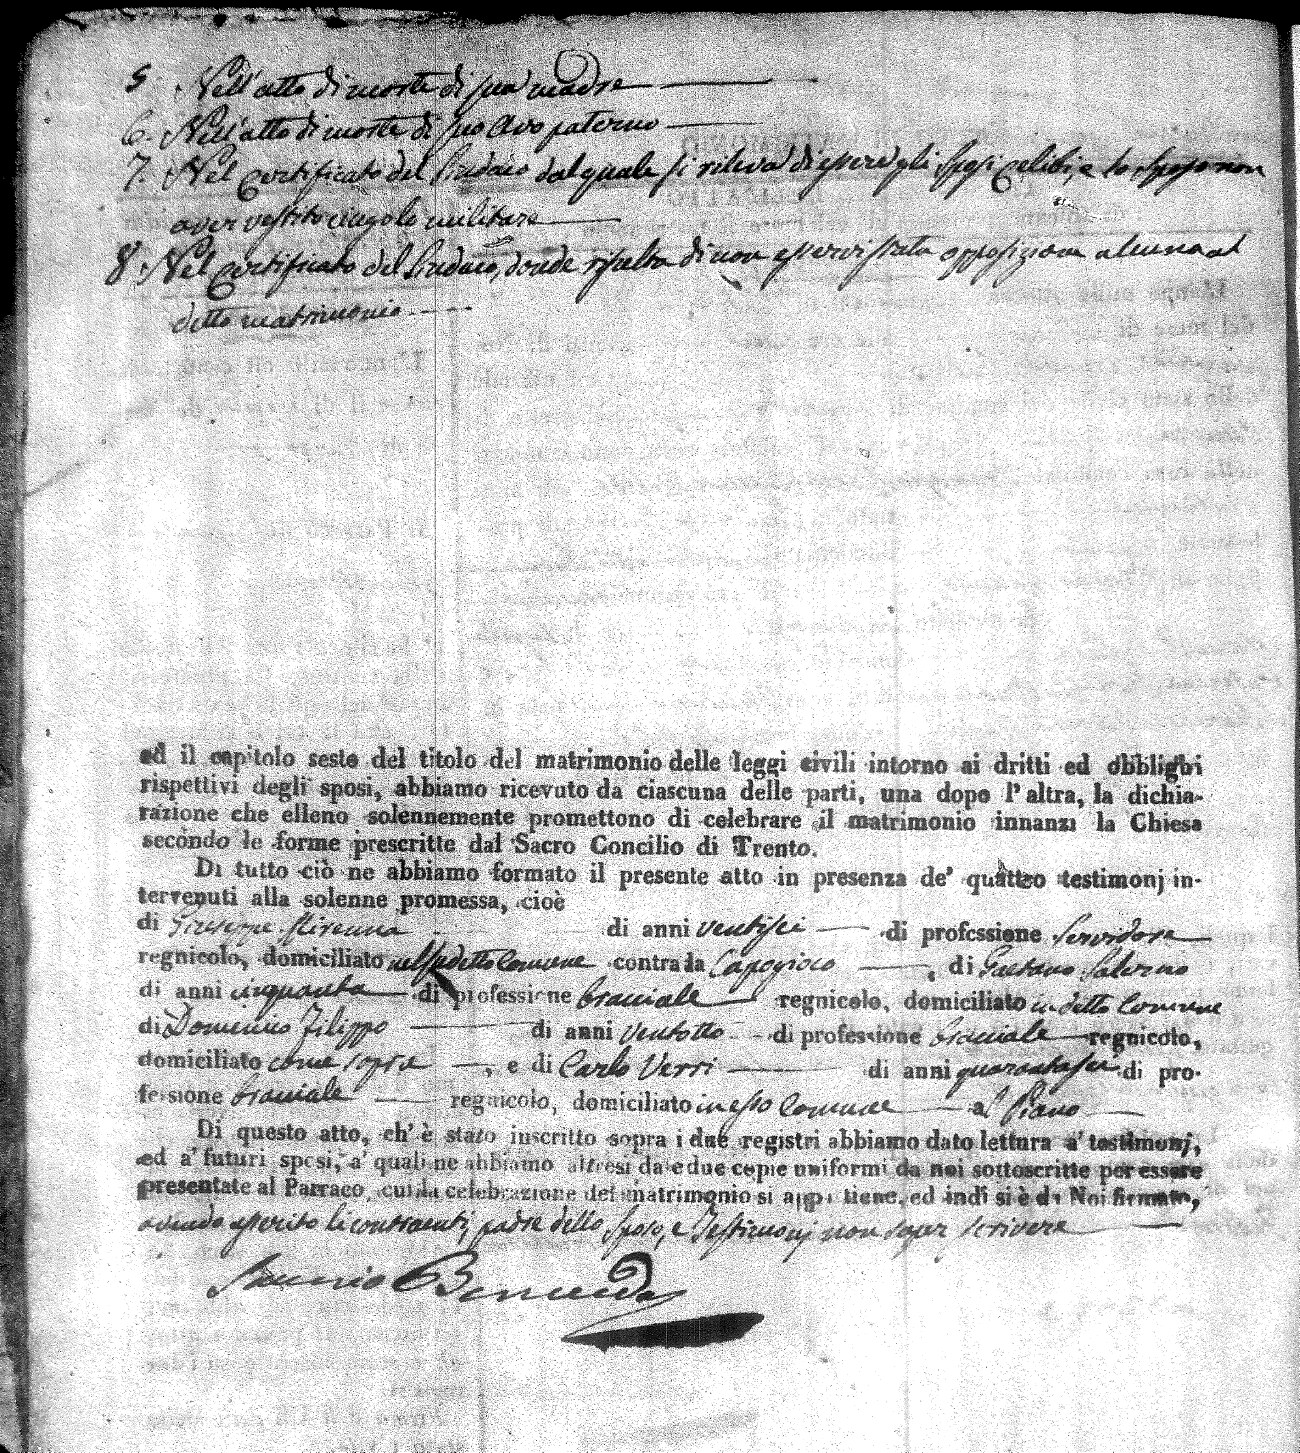 5. Nell'atto di morte di sua madre
6. Nell'atto di morte di suo Avo paterno
7. Nel Certificato del Sindaco dal quale si rileva di essere gli Sposi celibi, e lo sposo non
aver vestito cingolo militare
8. Nel Certificato del Sindaco, donde risulta di non esservi stata opposizione alcuna al
detto matrimonio
ed il capitolo sesto del titolo del matrimonio delle leggi civili intorno ai dritti ed obblighi
rispettivi degli sposi, abbiamo ricevuto da ciascuna delle parti, una dopo l'altra, la dichia-
razione che elleno solennemente promettono di celebrare il matrimonio innanzi la Chiesa
secondo le forme prescritte dal Sacro Concilio di Trento.
Di tutto ciò ne abbiamo formato il presente atto in presenza de' quattro testimonj in-
tervenuti alla solenne promessa, cioè
di Giuseppe di anni ventisei di professione Servidore
regnicolo, domiciliato nel sudetto Comune contrada Capogioco, di Gaetano Salerno
di anni cinquanta di professione bracciale regnicolo, domiciliato in detto Comune
di Domenico Filippo di anni ventotto di professione bracciale regnicolo,
domiciliato come sopra, e di Carlo Verri di anni quarantasei di pro-
fessione bracciale regnicolo, domiciliato in esso Comune al Piano
Di questo atto, ch'è stato inscritto sopra i due registri abbiamo dato lettura a' testimonj,
ed a' futuri sposi, a' quali ne abbiamo altresì date due copie uniformi da noi sottoscritte per essere
presentate al Parraco, cui la celebrazione del matrimonio si appartiene, ed indi si è da Noi firmato,
avendo asserito li contraenti, padre dello Sposo, e Testimonj non saper scrivere